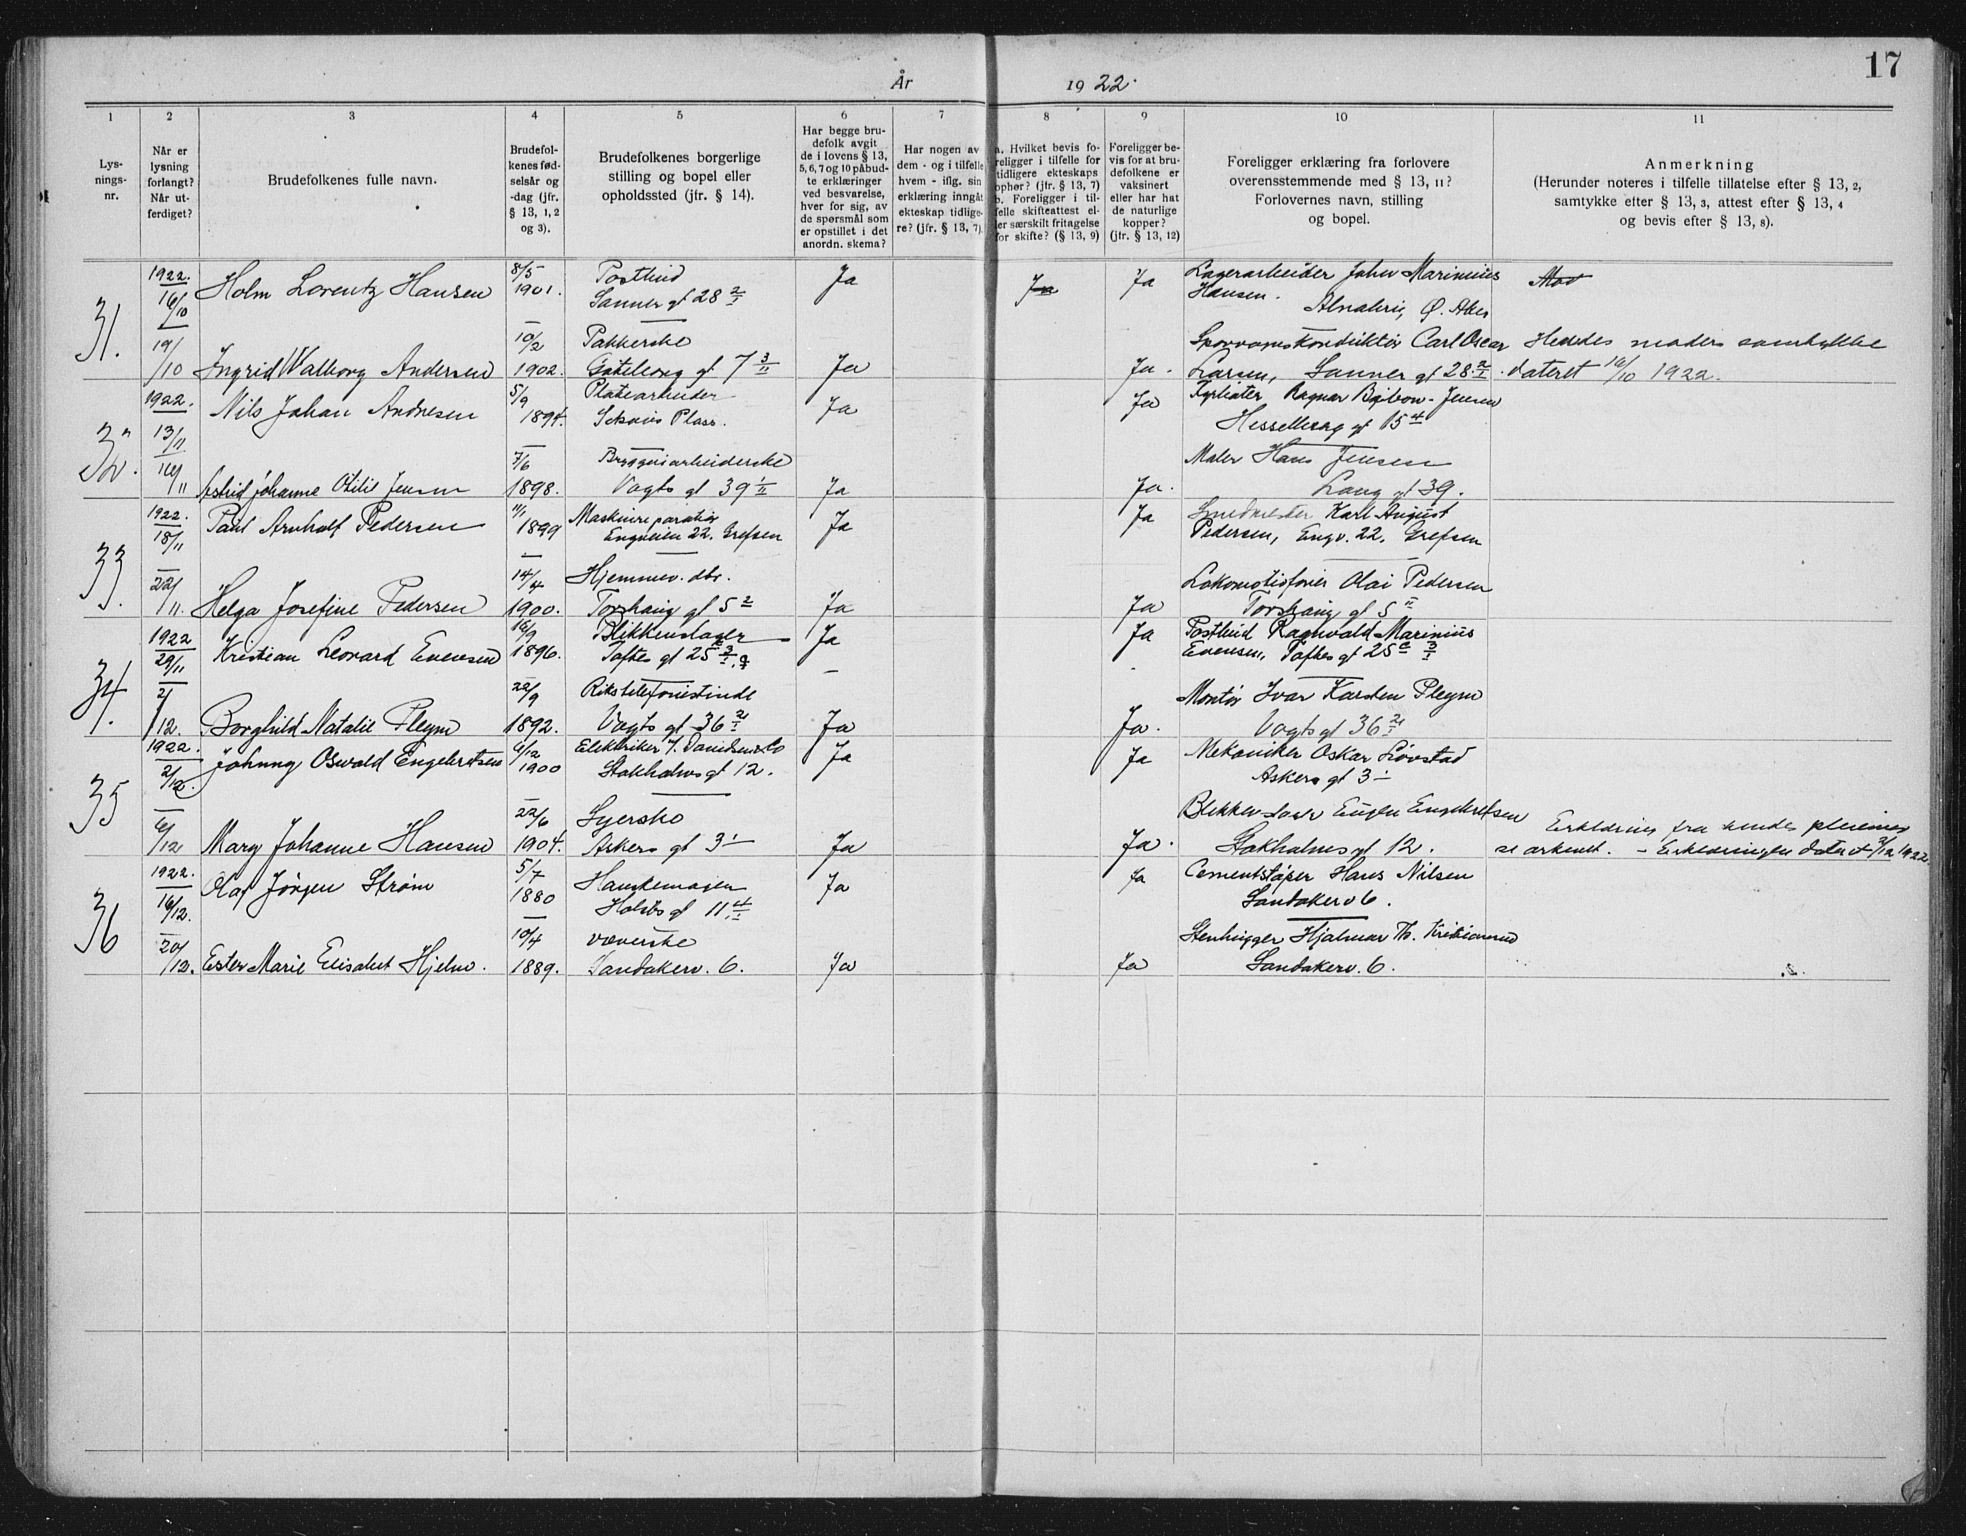 17
År 1922.
1 2 3 4 5 6 7 8 9 10 11
Lys-
nings-
nr.
Når er
lysning
forlangt?
Når ut-
ferdiget?
Brudefolkenes fulle navn.
Brudefol-
kenes fød-
selsår og
-dag (jfr.
§ 13, 1, 2
og 3).
Brudefolkenes borgerlige
stilling og bopel eller
opholdssted (jfr. § 14).
Har begge bru-
defolk avgit
de i lovens § 13,
5, 6, 7 og 10 påbud-
te erklæringer
ved besvarelse,
hver for sig, av
de spørsmål som
er opstillet i det
anordn. skema?
Har nogen av
dem - og i tilfelle
hvem - iflg. sin
erklæring inngåt
ekteskap tidlige-
re? (jfr. § 13, 7).
a. Hvilket bevis fo-
religger i tilfelle for
tidligere ekteskaps
ophør? (jfr. § 13, 7)
b. Foreligger i til-
felle skifteattest el-
ler særskilt fritagelse
for skifte? (§ 13, 9)
Foreligger be-
vis for at bru-
defolkene er
vaksinert
eller har hat
de naturlige
kopper?
(jfr. § 13, 12)
Foreligger erklæring fra forlovere
overensstemmende med § 13, 11?
Forlovernes navn, stilling
og bopel.
Anmerkning
(Herunder noteres i tilfelle tillatelse efter § 13, 2,
samtykke efter § 13, 3, attest efter § 13, 4
og bevis efter § 13, 8).
31.
1922.
16/10
19/10
Holm Lorentz Hansen
8/5
1901.
Postbud
Sanner gt 28 2/I
Ja
Ja
Ja
Lagerarbeider Johan Marinius
Hansen.
Alnabru, Ø. Aker
Ingrid Walborg Andersen
10/2
1902.
Pakkerske
Gøteborg gt 7 3/II
Ja
Ja.
Sporvognskonduktør Carl Oscar
Larsen, Sanner gt 28 2/I.
Hendes moders samtykke
dateret 16/10 1922.
32.
1922.
13/11
16/11
Nils Johan Andresen
5/9
1894.
Platearbeider
Plass.
Ja
Ja
Ragnar Jensen
Hesselberg gt 15 4
Astrid Johanne Otilie Jensen
7/6
1898.
Bryggeriarbeiderske
Vogts gt 39 1/II
Ja
Ja.
Maler Hans Jensen
Lang gt 39.
33.
1922.
18/11
22/11.
Paul Arnholf Pedersen
1899
Maskinreparatør
Engveien 22, Grefsen
Ja
Ja
Smedmester Karl August
Pedersen, Engv. 22, Grefsen
Helga Josefine Pedersen
14/4
1900.
Hjemmev. dtr.
Torshaug gt 5 2
Ja
Ja
Lokomotivfører Olai Pedersen
Torshaug gt 5 II
34.
1922
29/11
2/12.
Kristian Leonard Evensen
16/9
1896.
Blikkenslager
Toftes gt 25 c 3/I
Ja
Ja
Postbud Ragnvald Marinius
Evensen, Toftes gt 25 c 3/I
Borghild Natalie Pleym
22/9
1892.
Rikstelefonistinde
Vogts gt 36 2/I
Ja
Ja.
Montør Ivar Karsten Pleym
Vogts gt 36 2/I
35
1922.
2/12.
6/12
Johnny Oswald Engebretsen
6/12
1900
Elektriker
Stokholms gt 12.
Ja
Ja
Mekaniker Oskar Løvstad
Askers gt 3 1
Mary Johanne Hansen
22/6
1904.
Syerske
Askers gt 3 1
Ja
Ja.
Eugen Engebretsen
Stokholms gt 12.
Erklæring fra hendes pleiemor
se arkivet. - Erklæringen dateret 2/12 1922
36
1922.
16/12.
20/12.
Olaf Jørgen Strøm
5/7
1880
Hanskemager
Holsts gt 11 4/I
Ja
Ja
Cementstøper Hans Nilsen
Sandakerv 6.
Ester Marie Elisabet Hjelm.
10/4
1889.
Væverske
Sandakerv. 6.
Ja
Ja
Stenhugger Hjalmar Th.
Sandakerv. 6.